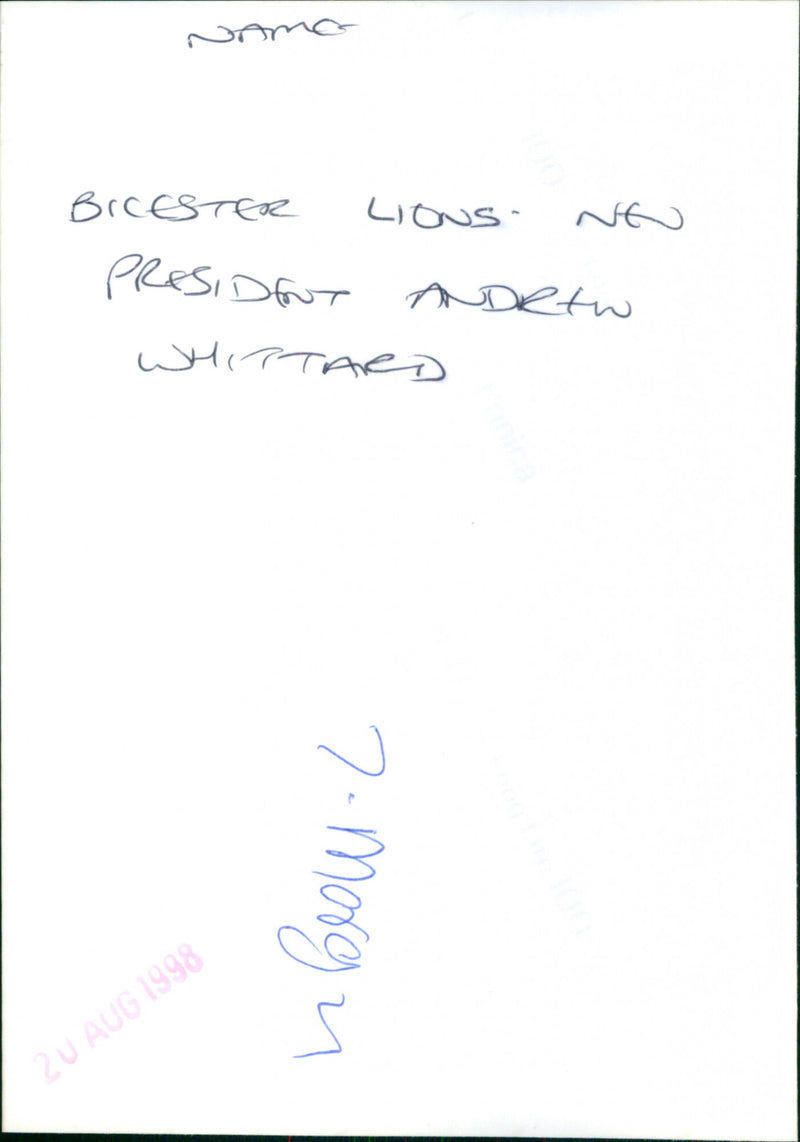 NAME
BICESTER LIONS- NEW
PRESIDENT ANDREW
WHITTARD
20 AUG 1998